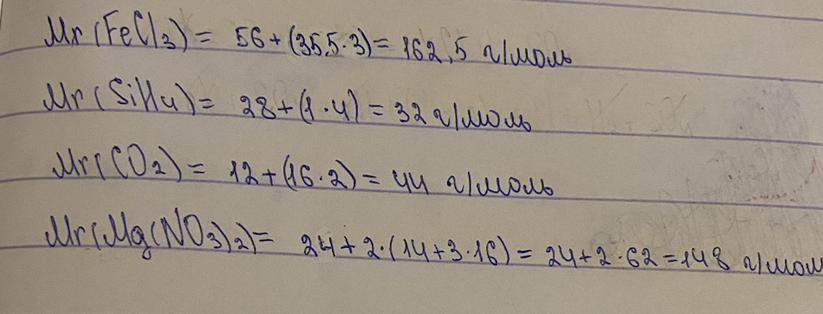 Mr(FeCl₃) = 56 + (35,5·3) = 162,5 г/моль
Mr(SiH₄) = 28 + (1·4) = 32 г/моль
Mr(CO₂) = 12 + (16·2) = 44 г/моль
Mr(Mg(NO₃)₂) = 24 + 2·(14 + 3·16) = 24 + 2·62 = 148 г/мол